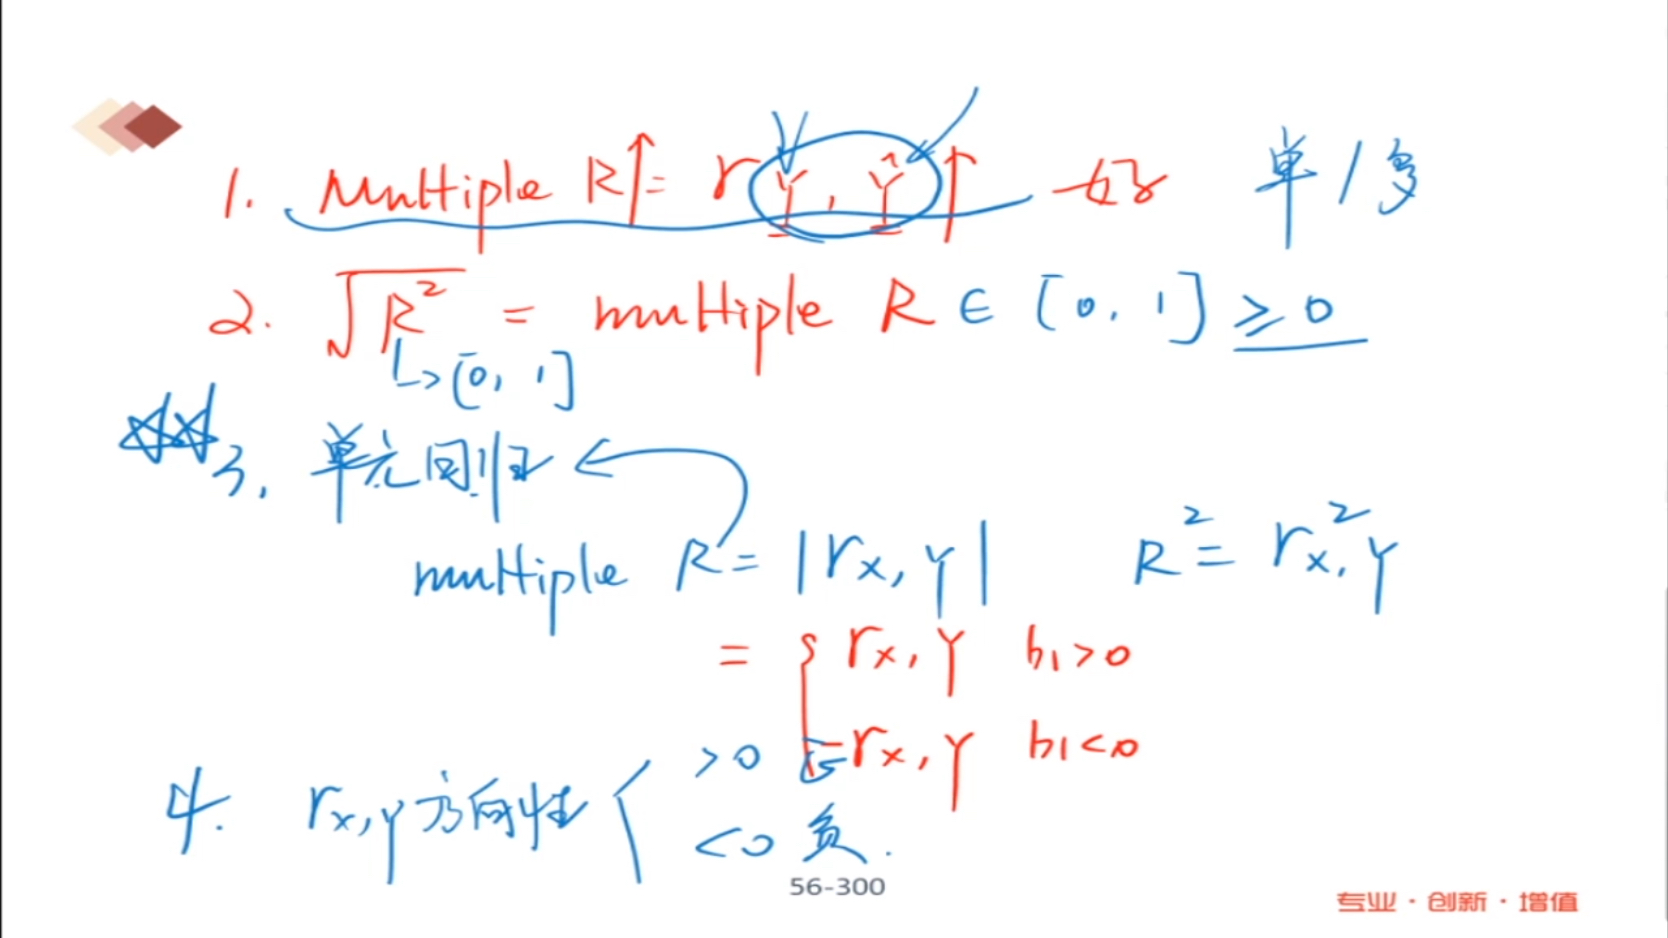 1. Multiple R↑ = r Y, Ŷ ↑ 好 单/多
2. √R² = multiple R ∈ [0, 1] ≥0
↳[0, 1]
☆☆3. 单元回归
multiple R = |rx,y| R² = r²x,y
= { rx,y b1>0
-rx,y b1<0
4. rx,y方向性 >0 正
<0 负.
56-300
专业·创新·增值